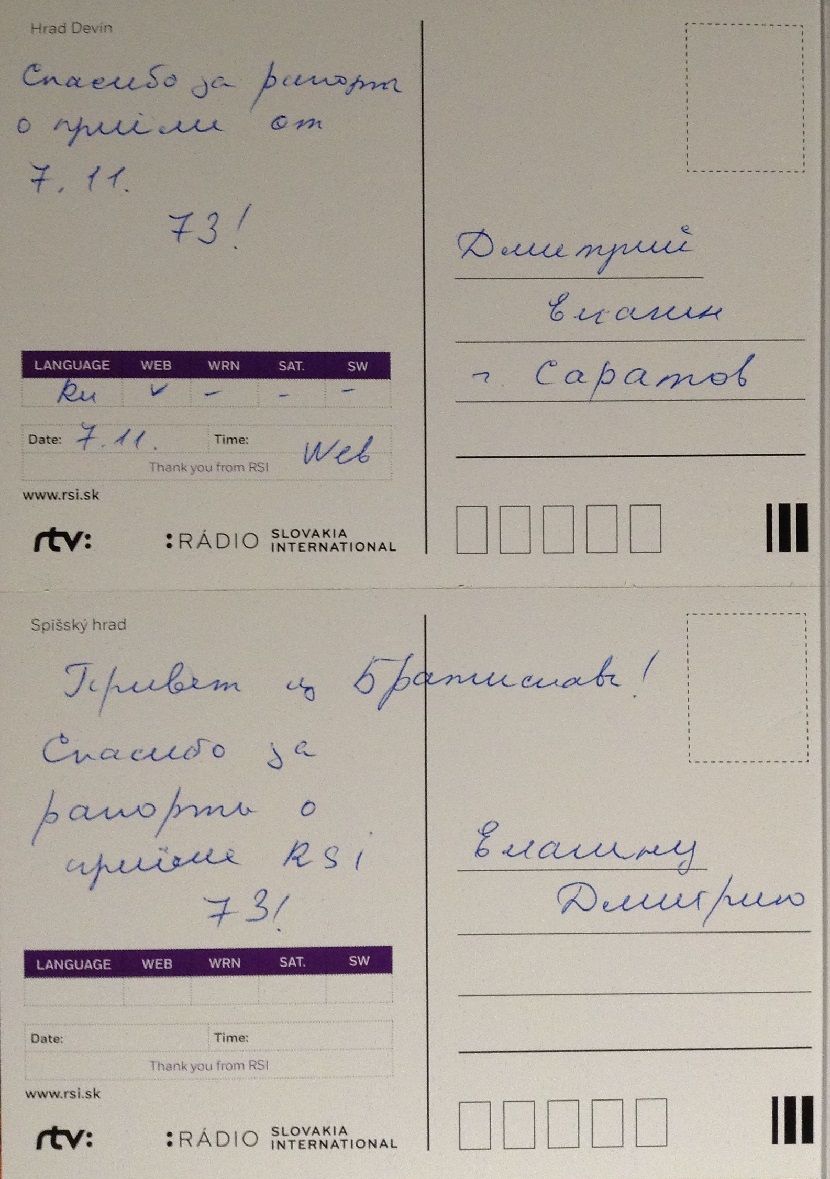 Hrad Devín
Спасибо за рапорты
о приёме от
7.11.
73!
Дмитрий
Елагин
г. Саратов
LANGUAGE WEB WRN SAT. SW
Ru ✓ – – –
Date: 7.11. Time: Web
Thank you from RSI
www.rsi.sk
rtv: :RÁDIO SLOVAKIA
INTERNATIONAL
Spišský hrad
Привет из Братиславы!
Спасибо за
рапорты о
приёме RSI
73!
Елагину
Дмитрию
LANGUAGE WEB WRN SAT. SW
Date: Time:
Thank you from RSI
www.rsi.sk
rtv: :RÁDIO SLOVAKIA
INTERNATIONAL